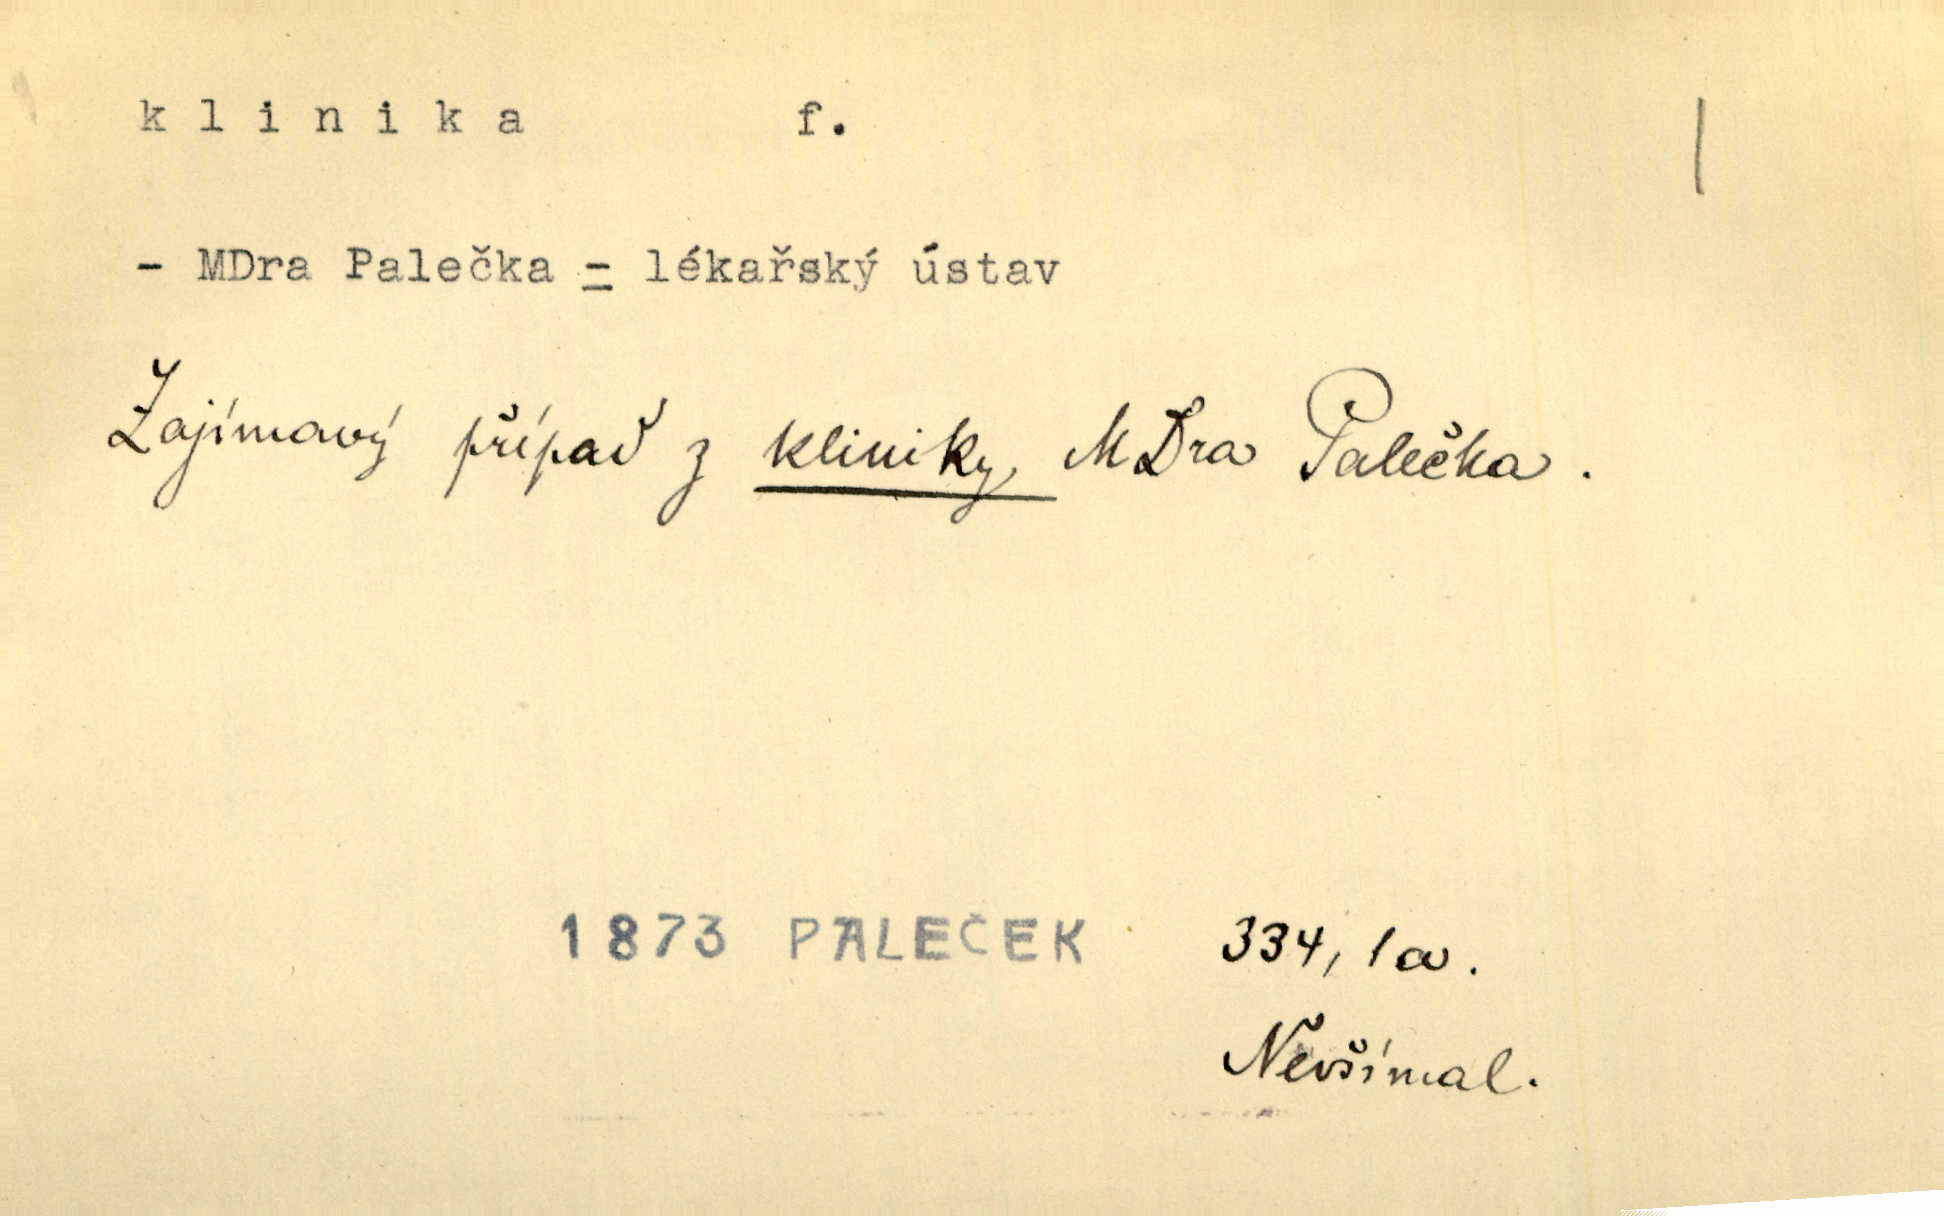 klinika f.
- MDra Palečka = lékařský ústav
Zajímavý případ z kliniky MDra Palečka.
1873 PALEČEK 334, 1a.
Nevšímal.